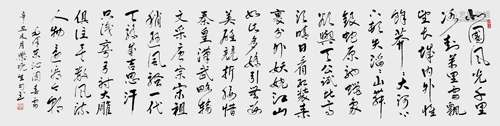 北国风光千里
冰封万里雪飘
望长城内外惟
馀莽莽大河上
下顿失滔滔山舞
银蛇原驰蜡象
欲与天公试比高
须晴日看红装素
裹分外妖娆江山
如此多娇引无数
英雄竞折腰惜
秦皇汉武略输
文采唐宗宋祖
稍逊风骚一代
天骄成吉思汗
只识弯弓射大雕
俱往矣数风流
人物还看今朝
毛泽东沁园春雪